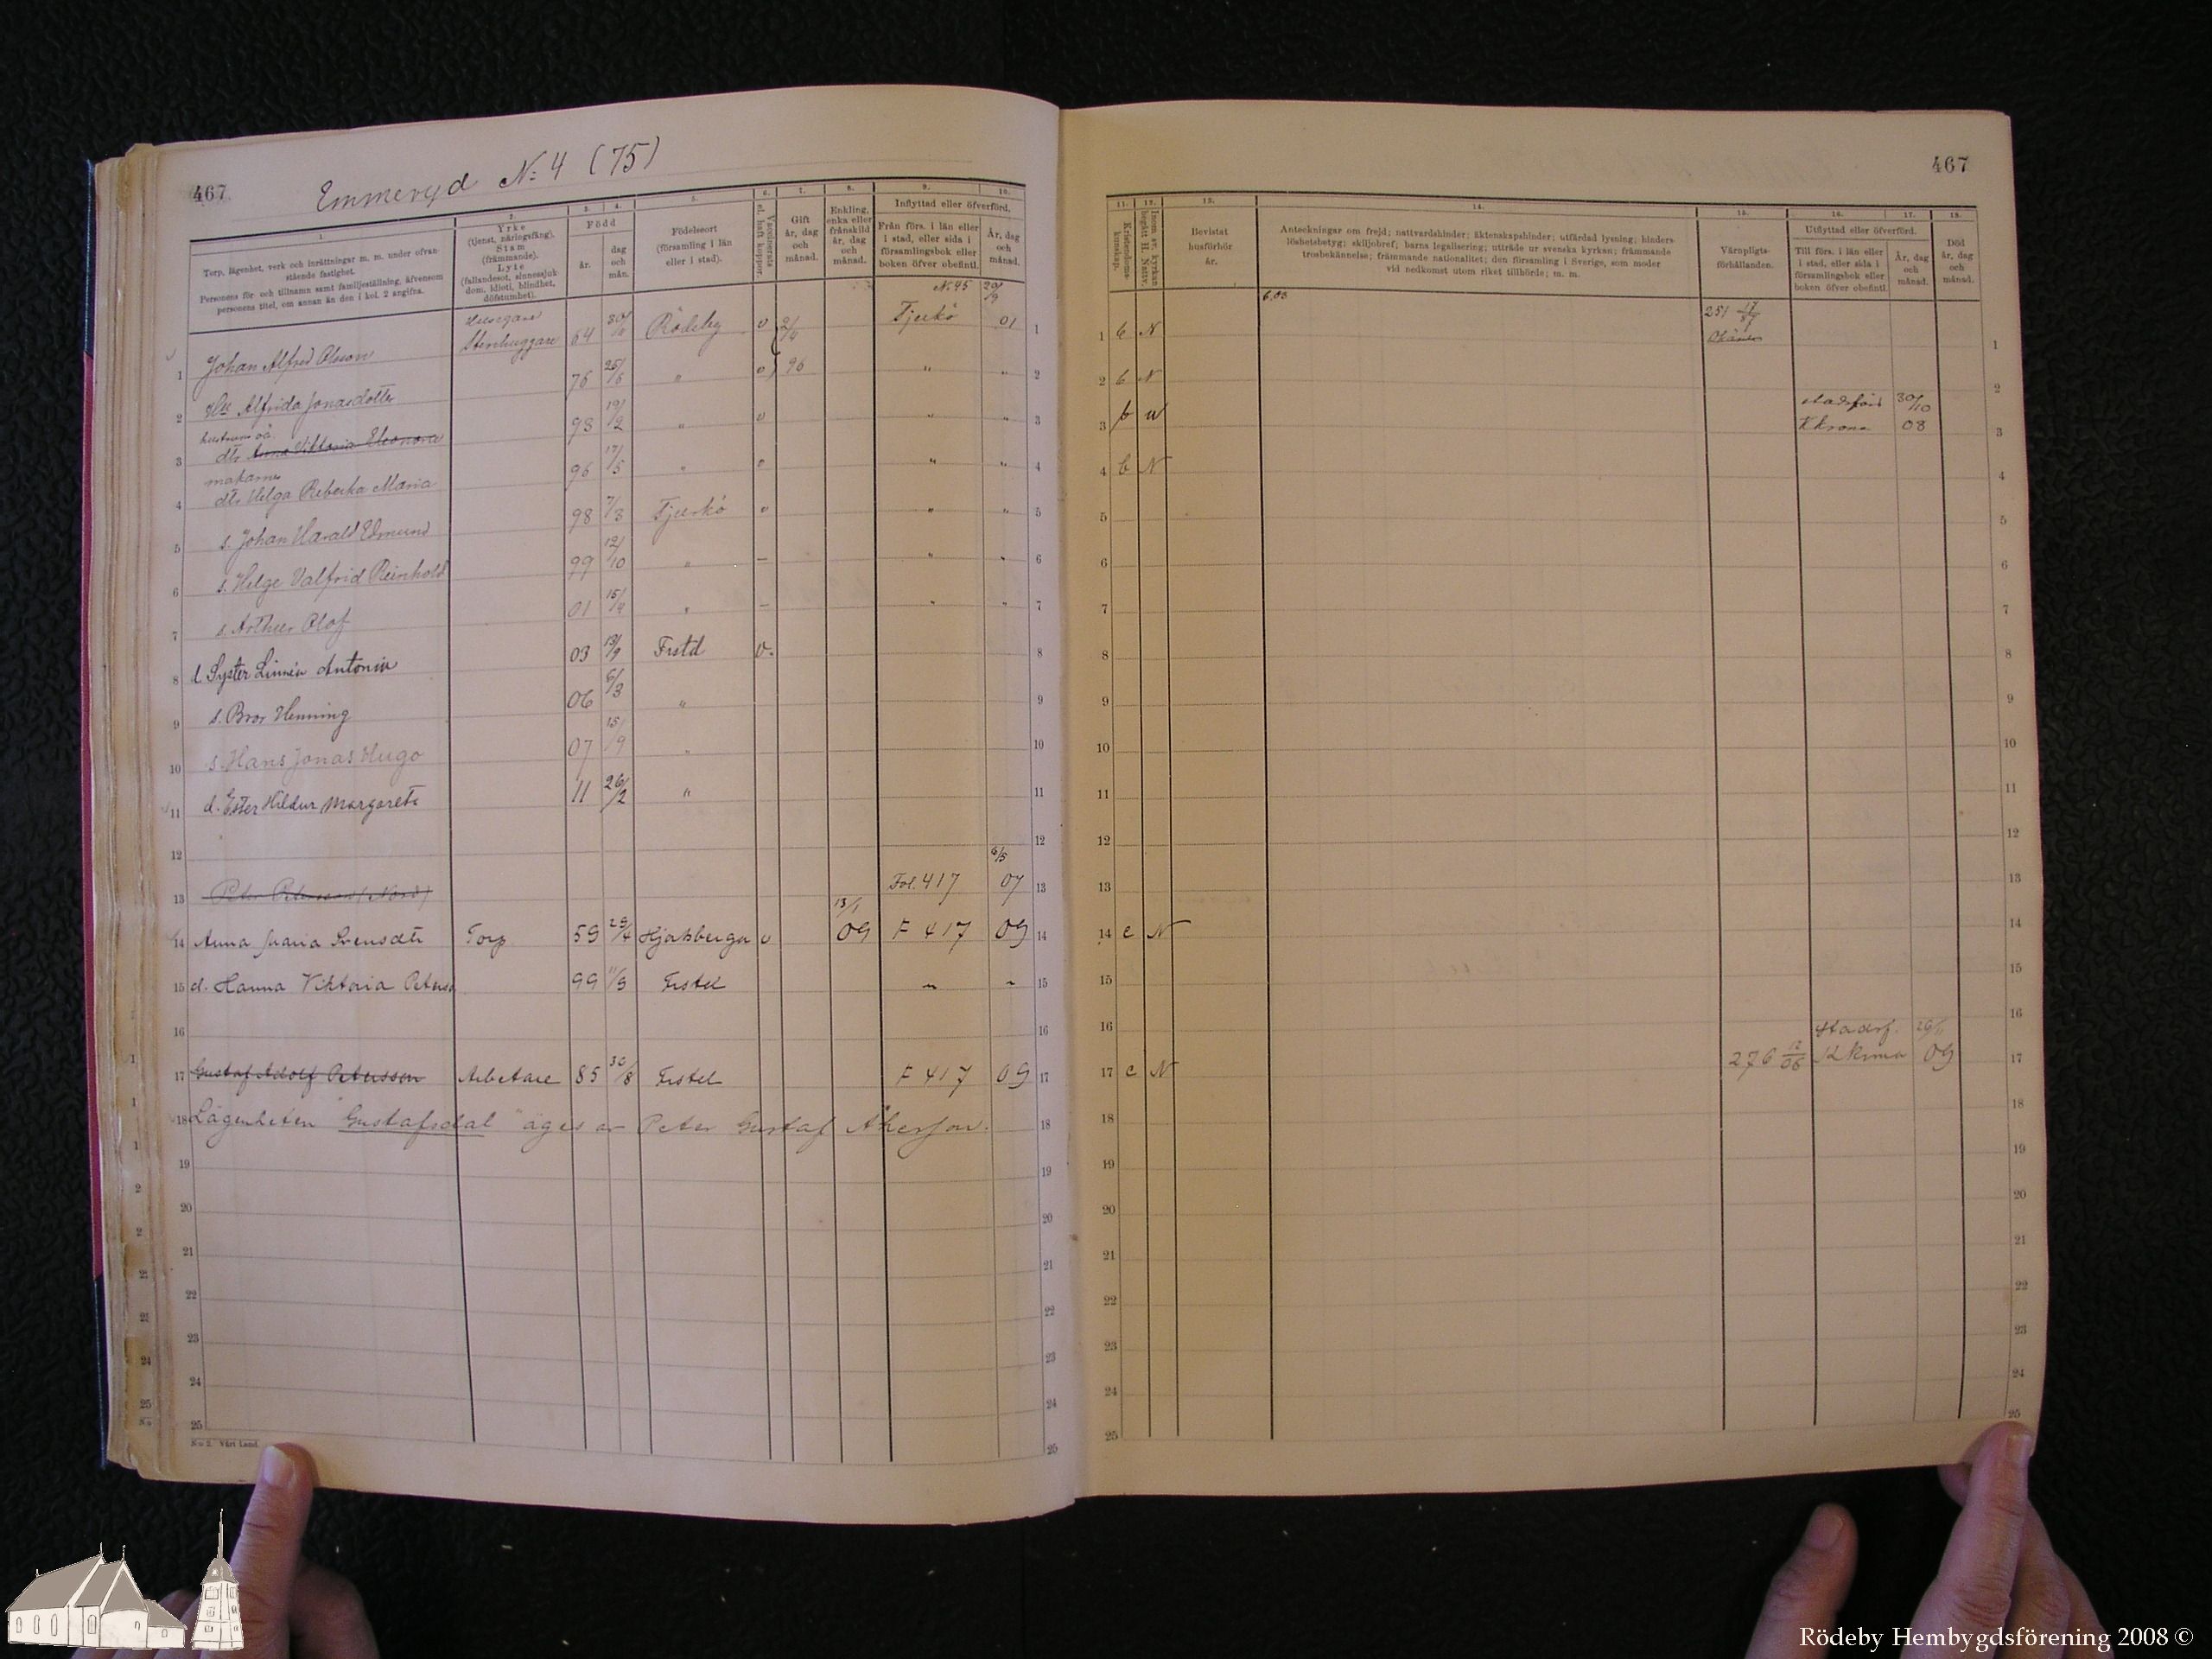 467.
Emmeryd № 4 (75)
1. 2. 3. 4. 5. 6. 7. 8. 9. 10.
Torp, lägenhet, verk och inrättningar m. m. under ofvan-
stående fastighet.
Personens för- och tillnamn samt familjeställning, äfvensom
personens titel, om annan än den i kol. 2 angifna.
Yrke
(tjenst, näringsfång).
Stam
(främmande).
Lyte
(fallandesot, sinnessjuk-
dom, idioti, blindhet,
döfstumhet).
Född
år.
dag
och
mån.
Födelseort
(församling i län
eller i stad).
Vaccinerats
el. haft koppor.
Gift
år, dag
och
månad.
Enkling,
enka eller
frånskild
år, dag
och
månad.
Inflyttad eller öfverförd.
Från förs. i län eller
i stad, eller sida i
församlingsbok eller
boken öfver obefintl.
År, dag
och
månad.
1 Johan Alfred Olsson Husegare Stenhuggare 64 30/11 Rödeby v 2/4 № 45 Tjurkö 20/9 01 1
2 Hu Alfrida Jonasdotter 76 25/6 " v 96 " " 2
hustruns oä.
3 dtr Anna Viktoria Eleonora 93 19/2 " v " " 3
makarnes
4 dtr Helga Rebecka Maria 96 17/5 " v " " 4
5 s. Johan Harald Edmund 98 7/3 Tjurkö v " " 5
6 s. Helge Valfrid Reinhold 99 12/10 " – " " 6
7 s. Arthur Olof 01 15/4 " – " " 7
8 d. Syster Linnéa Antonia 03 13/9 Frstd v. 8
9 s. Bror Henning 06 6/3 " 9
10 s. Hans Jonas Hugo 07 15/9 " 10
11 d. Ester Hildur Margareta 11 26/2 " 11
12 12
13 Peter Petersson (Nord) Fol. 417 6/5 07 13
14 Anna Maria Svensdtr Torp 59 29/4 Hjortsberga v 13/1 09 F 417 09 14
15 d. Hanna Viktoria Peters 99 11/9 Frstd " " 15
16 16
17 Gustaf Adolf Petersson Arbetare 85 30/8 Frstd F 417 09 17
18 Lägenheten "Gustafsdal" äges av Peter Gustaf Åkerson. 18
19 19
20 20
21 21
22 22
23 23
24 24
25 25
N:o 2. Vårt Land.
467
11. 12. 13. 14. 15. 16. 17. 18.
Kristendoms-
kunskap.
Inom sv. kyrkan
begått H. Nattv.
Bevistat
husförhör
år.
Anteckningar om frejd; nattvardshinder; äktenskapshinder; utfärdad lysning; hinders-
löshetsbetyg; skiljobref; barns legalisering; utträde ur svenska kyrkan; främmande
trosbekännelse; främmande nationalitet; den församling i Sverige, som moder
vid nedkomst utom riket tillhörde; m. m.
Värnpligts-
förhållanden.
Utflyttad eller öfverförd.
Till förs. i län eller
i stad, eller sida i
församlingsbok eller
boken öfver obefintl.
År, dag
och
månad.
Död
år, dag
och
månad.
1 b N 6.03 251 17/87 1
2 b N 2
3 b u stadsförs Kkrona 30/10 08 3
4 b N 4
5 5
6 6
7 7
8 8
9 9
10 10
11 11
12 12
13 13
14 c N 14
15 15
16 16
17 c N 276 12/06 stadsf. Kkrona 26/11 09 17
18 18
19 19
20 20
21 21
22 22
23 23
24 24
25 25
Rödeby Hembygdsförening 2008 ©